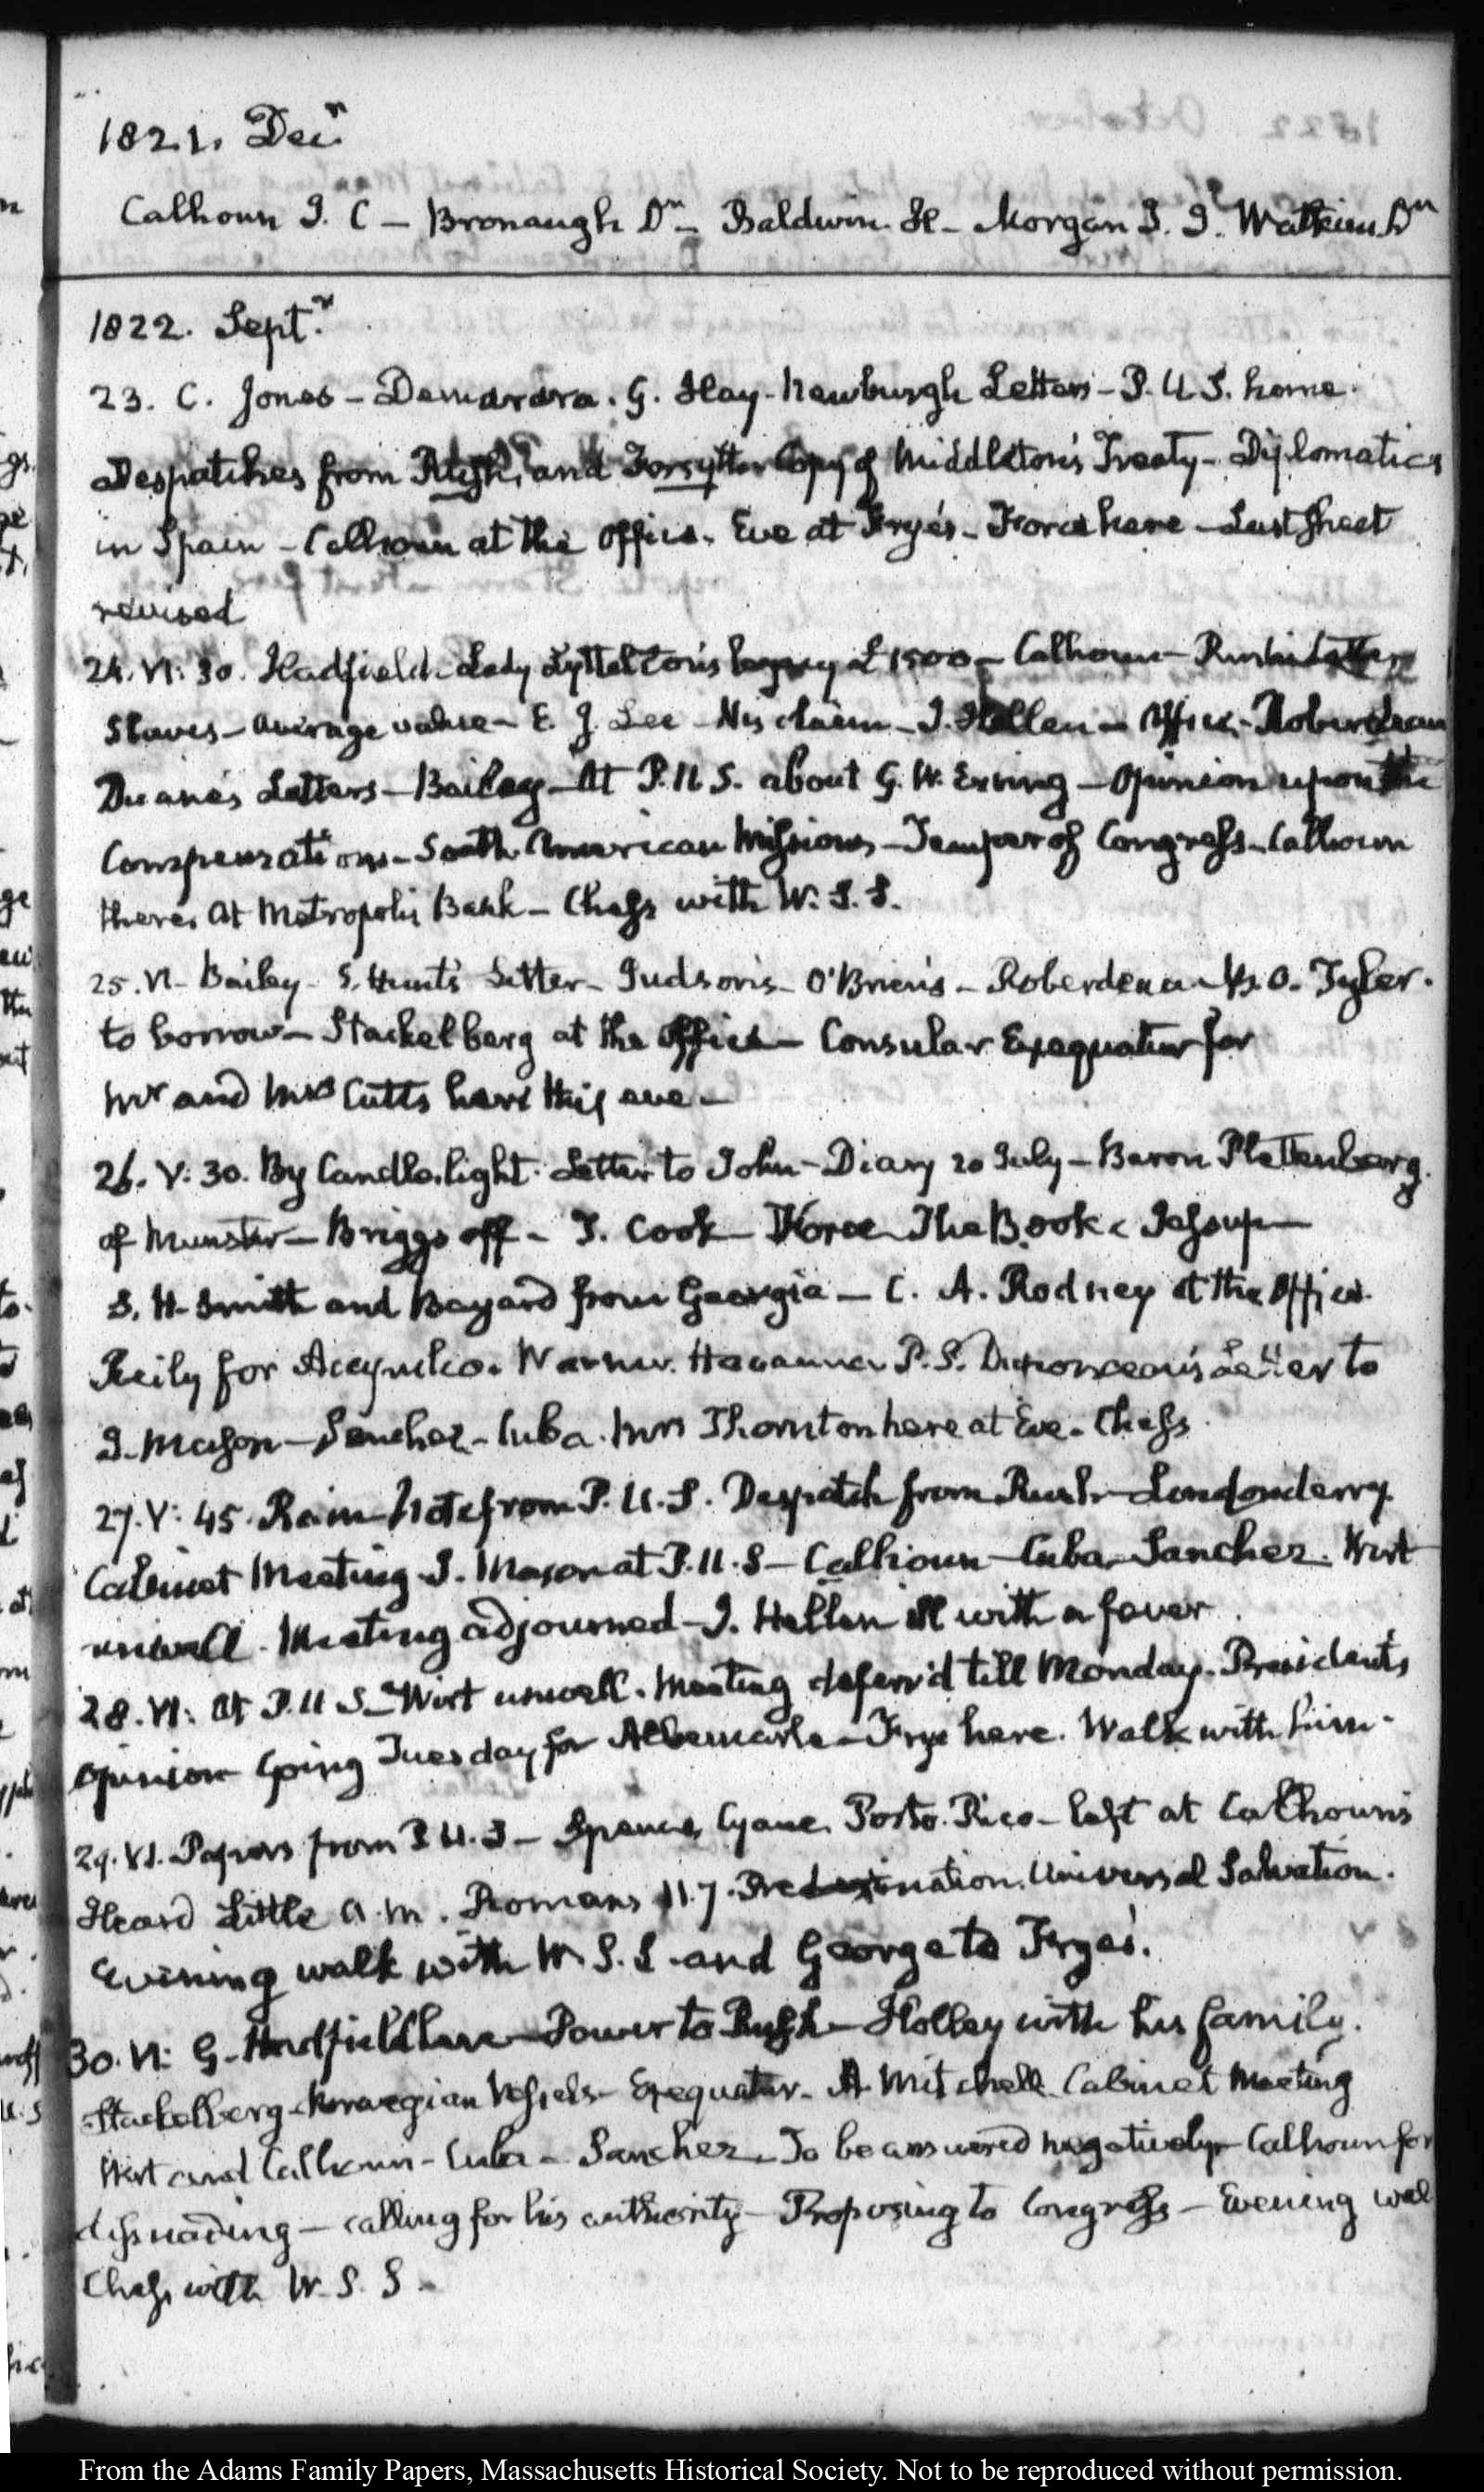 1821. Decr
Calhoun J. C – Bronaugh Dr – Baldwin H – Morgan J. J. Watkins Dr
1822. Septr
23. C. Jones – Demarara. G. Hay – Newburgh Letters – P. U. S. home.
Despatches from Rush, and Forsyth Copy of Middleton's Treaty – Diplomatics
in Spain – Calhoun at the office. Eve at Frye's – Force here – Last sheet
revised
24. VI: 30. Hadfield – Lady Lyttelton's legacy £1500 – Calhoun –
Slaves – average value – E. J. Lee – His claim – J. Hellen – Office – Roberdeau
Duane's Letters – Bailey – At P. U. S. about G. W. Erving – Opinion upon the
Compensations – South American Missions – Temper of Congress – Calhoun
there. At Metropolis Bank – Chess with W. S. S.
25. VI – Bailey – S. Hunt's Letter – Judson's – O'Brien's – Roberdeau – O. Tyler.
to borrow – Stackelberg at the office – Consular Exequatur for
Mr and Mrs Cutts here this eve –
26. V: 30. By Candle light. Letter to John – Diary 20 July – Baron Plettenberg.
of Munster – Briggs off – T. Cook – Force The Book – Jessup –
S. H. Smith and Bayard from Georgia – C. A. Rodney at the office.
Reily for Acapulco. Warner. Havanna P. S. Duponceau's Letter to
J. Mason – Sanchez – Cuba. Mrs Thornton here at Eve. Chess
27. V: 45. Rain – Note from P. U. S. Despatch from Rush – Londonderry.
Cabinet Meeting J. Mason at P. U. S – Calhoun – Cuba – Sanchez. Wirt
unwell. Meeting adjourned – J. Hellen ill with a fever
28. VI: At P. U S – Wirt unwell. Meeting deferr'd till Monday. President's
opinion Going Tuesday for Albemarle – Frye here. Walk with him –
29. VI. Papers from P. U. S – Spence, Cyane. Porto. Rico – left at Calhoun's
Heard Little A. M. Romans 11. 7. Predestination. Universal Salvation.
Evening walk with W. S. S. and George to Fryes'.
30. VI: G. Hadfield here – Power to Rush – Holley with his family.
Stackelberg – Norwegian Vessels – Exequatur – A. Mitchell. Cabinet Meeting
Wirt and Calhoun – Cuba – Sanchez. To be answered negatively – Calhoun for
dissuading – calling for his authority – Proposing to Congress – Evening wal
Chess with W. S. S.
From the Adams Family Papers, Massachusetts Historical Society. Not to be reproduced without permission.